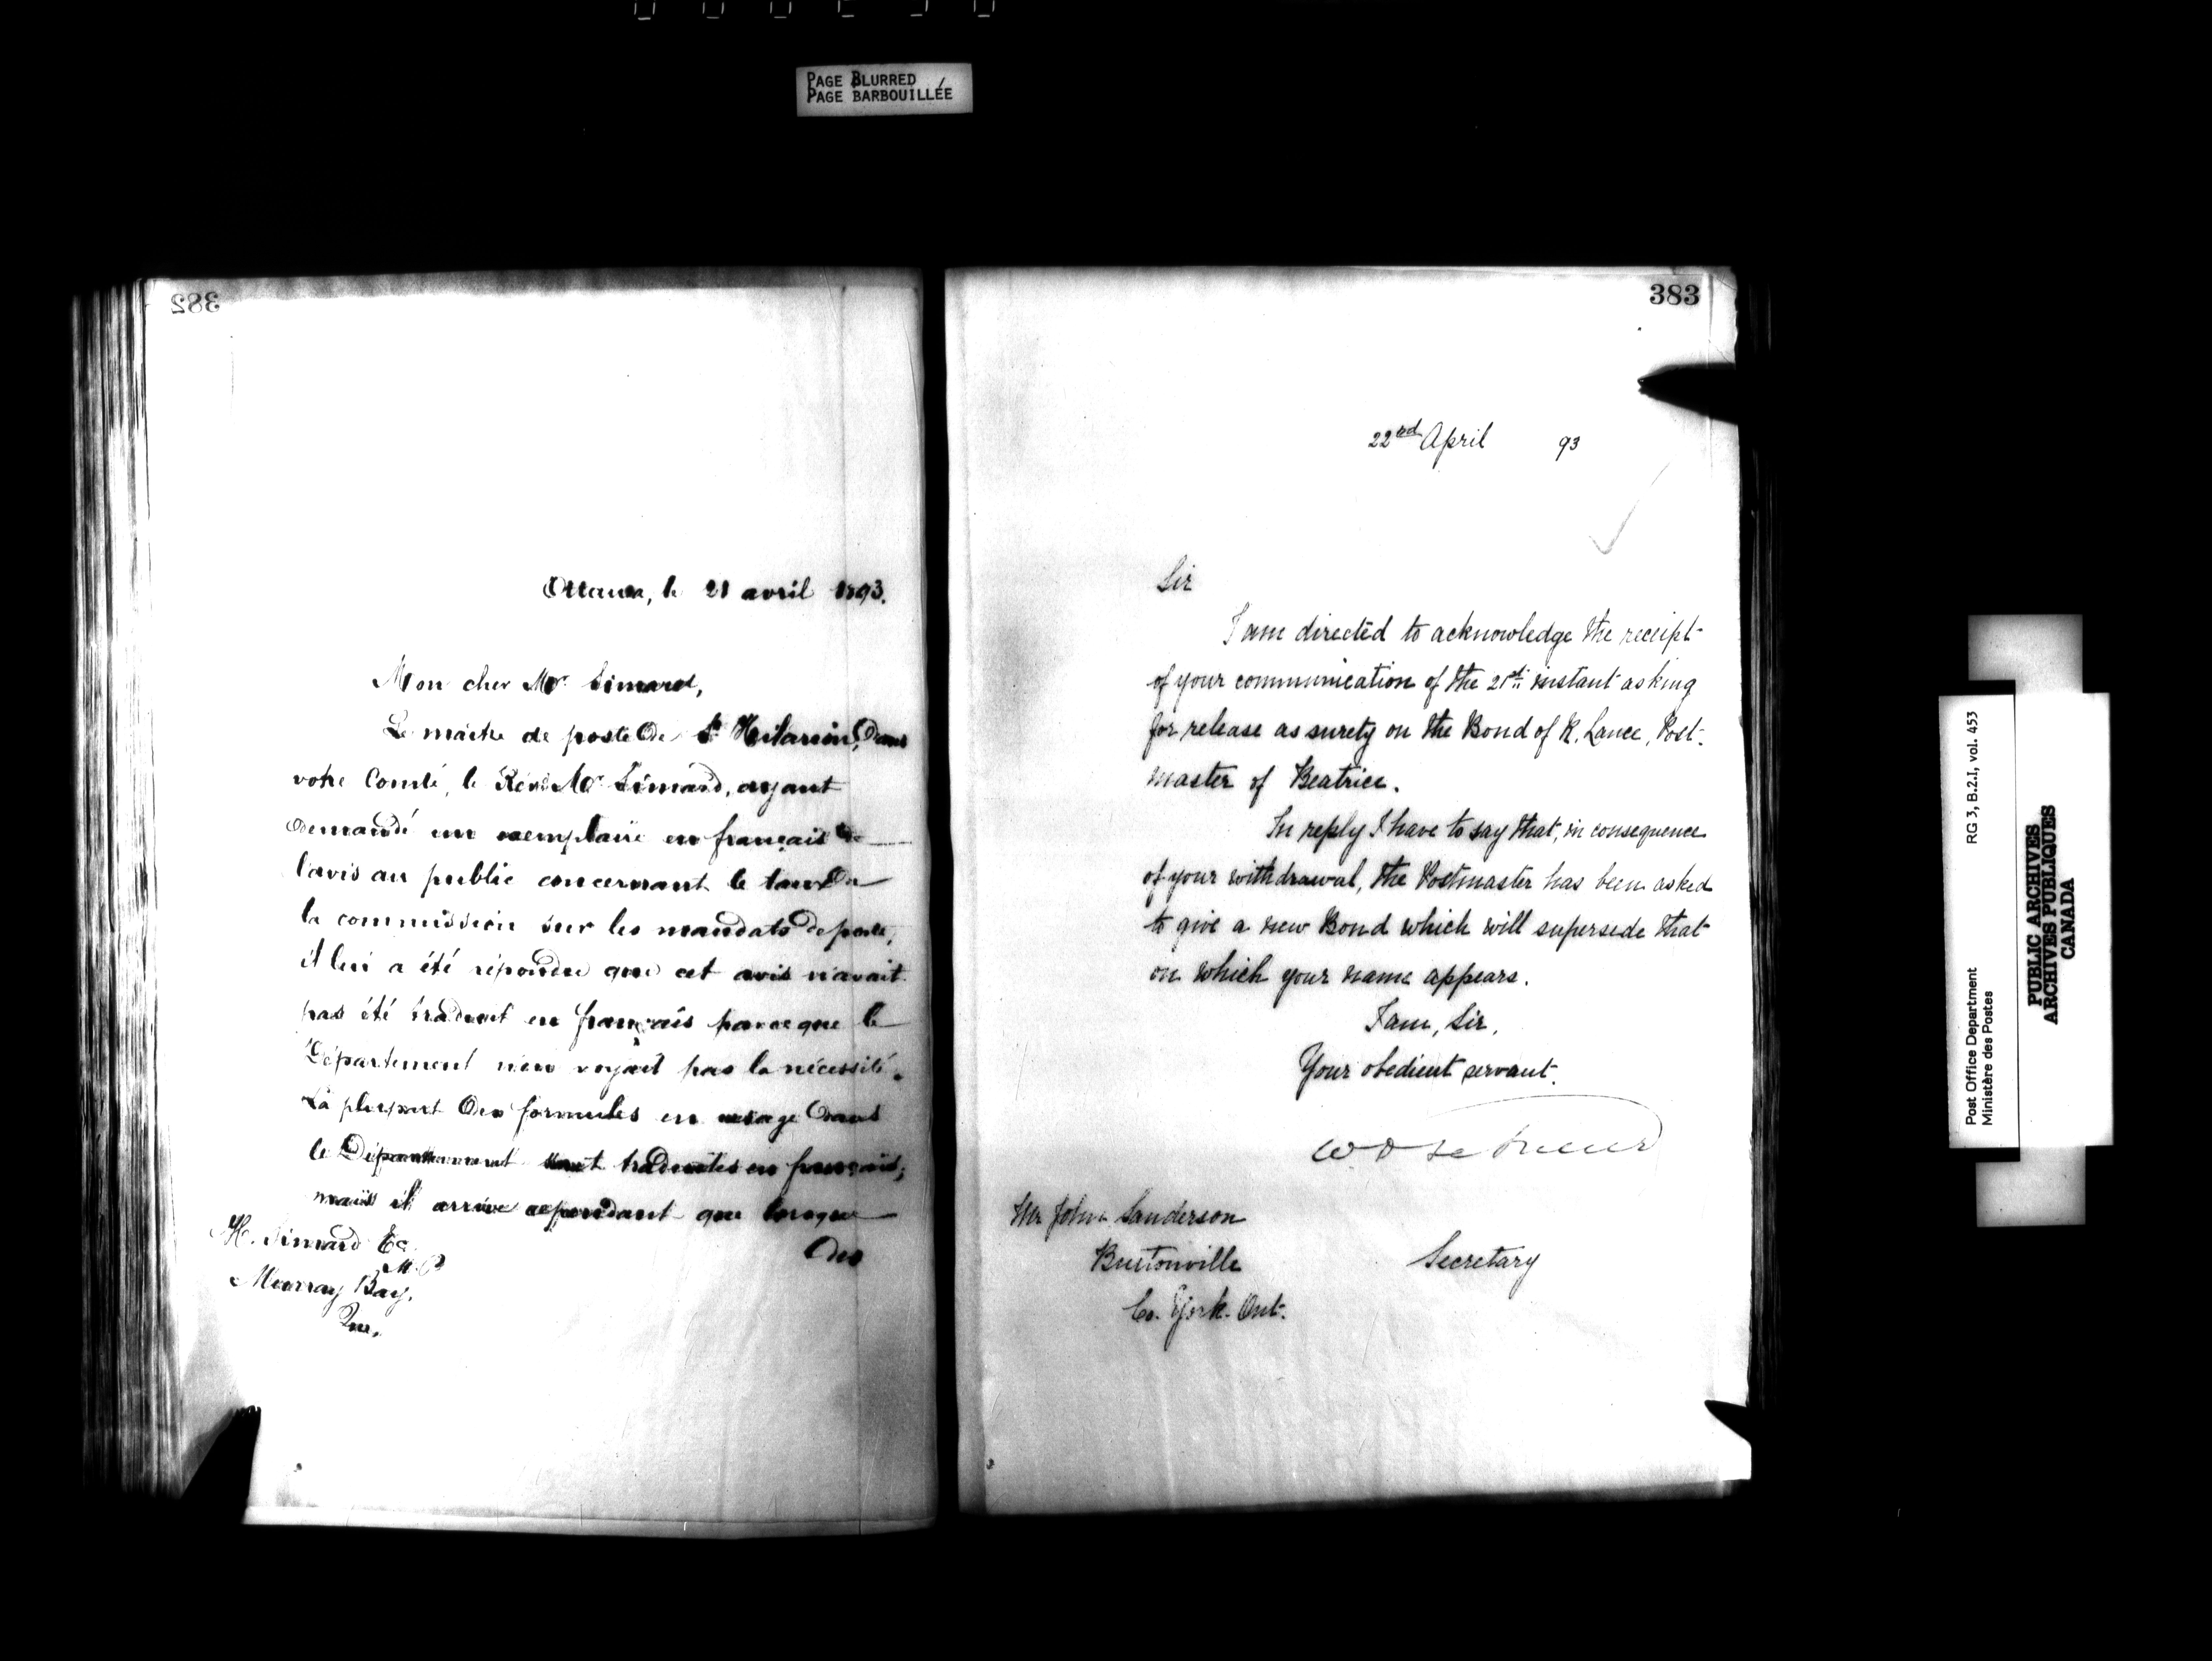 PAGE BLURRED
PAGE BARBOUILLÉE
382
Ottawa, le 21 avril 1893.
Mon cher Mr Simard,
Le maître de poste de St Hilarion, dans
votre Comté, le Révd Mr Simard, ayant
demandé un exemplaire en français de
l'avis au public concernant le taux de
la commission sur les mandats de poste,
il lui a été répondu que cet avis n'avait
pas été traduit en français parce que le
Département n'en voyait pas la nécessité.
La plupart des formules en usage dans
le Département sont traduites en français;
mais il arrive cependant que lorsque
des
H. Simard Ec.
M.P.
Murray Bay,
Que.
383
22nd April 93
Sir
I am directed to acknowledge the receipt
of your communication of the 21st instant asking
for release as surety on the Bond of R. Lance, Post-
master of Beatrice.
In reply I have to say that, in consequence
of your withdrawal, the Postmaster has been asked
to give a new Bond which will supersede that
on which your name appears.
I am, Sir,
Your obedient servant.
Mr John Sanderson
Buttonville
Secretary
Co. York. Ont.
Post Office Department RG 3, B.2.I, vol. 453
Ministère des Postes
PUBLIC ARCHIVES
ARCHIVES PUBLIQUES
CANADA